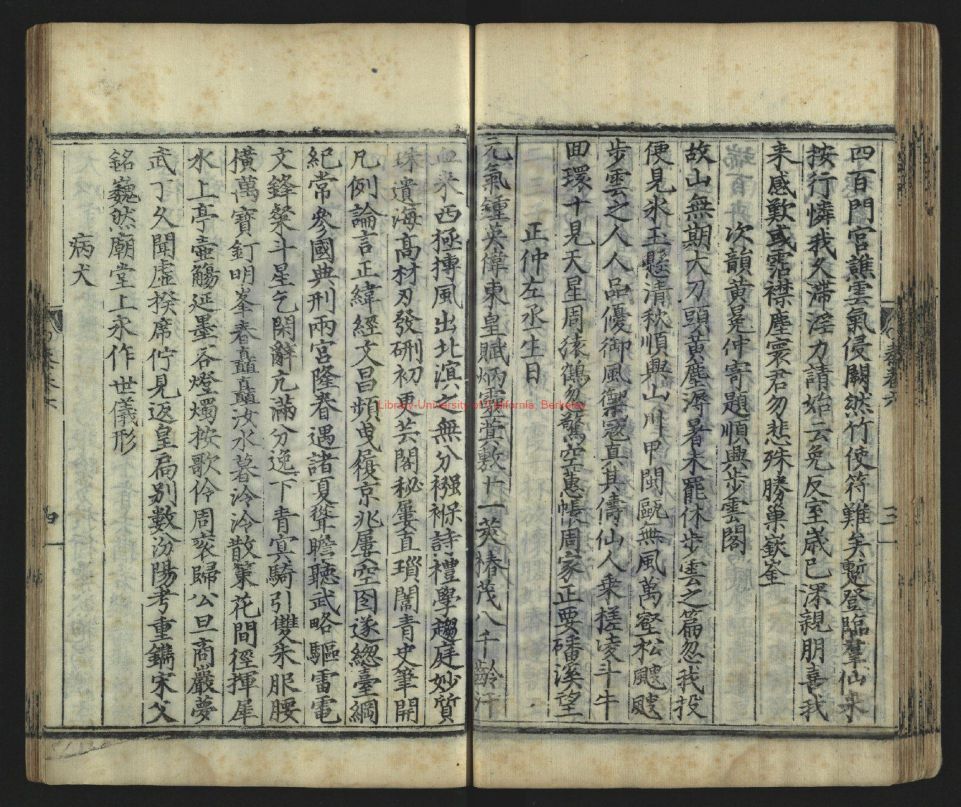 四百門宮譙雲氣侵關然竹使符難矣蹔登臨羣仙來
按行憐我久滯淫力請始云免反室歲已深親朋喜我
來感歎或霑襟塵寰君勿悲殊勝巢嶔崟
次韻黃冕仲寄題順興步雲閣
故山無期大刀頭黃塵溽暑未罷休步雲之篇忽我投
便見氷玉懸清秋順興山川甲閩甌無風萬壑松颼颼
步雲之人人品優御風禦寇真其儔仙人乗槎凌斗牛
田環十見天星周猿鶴驚空蕙帳周家正要磻溪望
正仲左丞生日
元氣鍾英偉東皇賦炳靈蓂敷十一莢椿茂八千齡汗
血來西極摶風出北溟無分襁褓詩禮學趨庭妙質
珠遺海髙材刃發硎初芸閣秘屢直瑣闈青史筆開
凡例論言正緯經文昌頻曳履京兆屢空囹遂緫臺綱
紀常參國典刑兩宮隆眷遇諸夏聳瞻聽武略驅雷電
文鋒粲斗星乞閑辭亢滿分逸下青冥騎引雙朱服腰
横萬寶釘明峯春矗矗汝水暮泠泠散策花間徑揮犀
水上亭壺觴延墨客燈燭按歌伶周衮歸公旦商巖夢
武丁久聞虛揆席佇見返皇扃别數汾陽考重鐫宋父
銘巍然廟堂上永作世儀形
病犬
Library-University of California, Berkeley
三
四